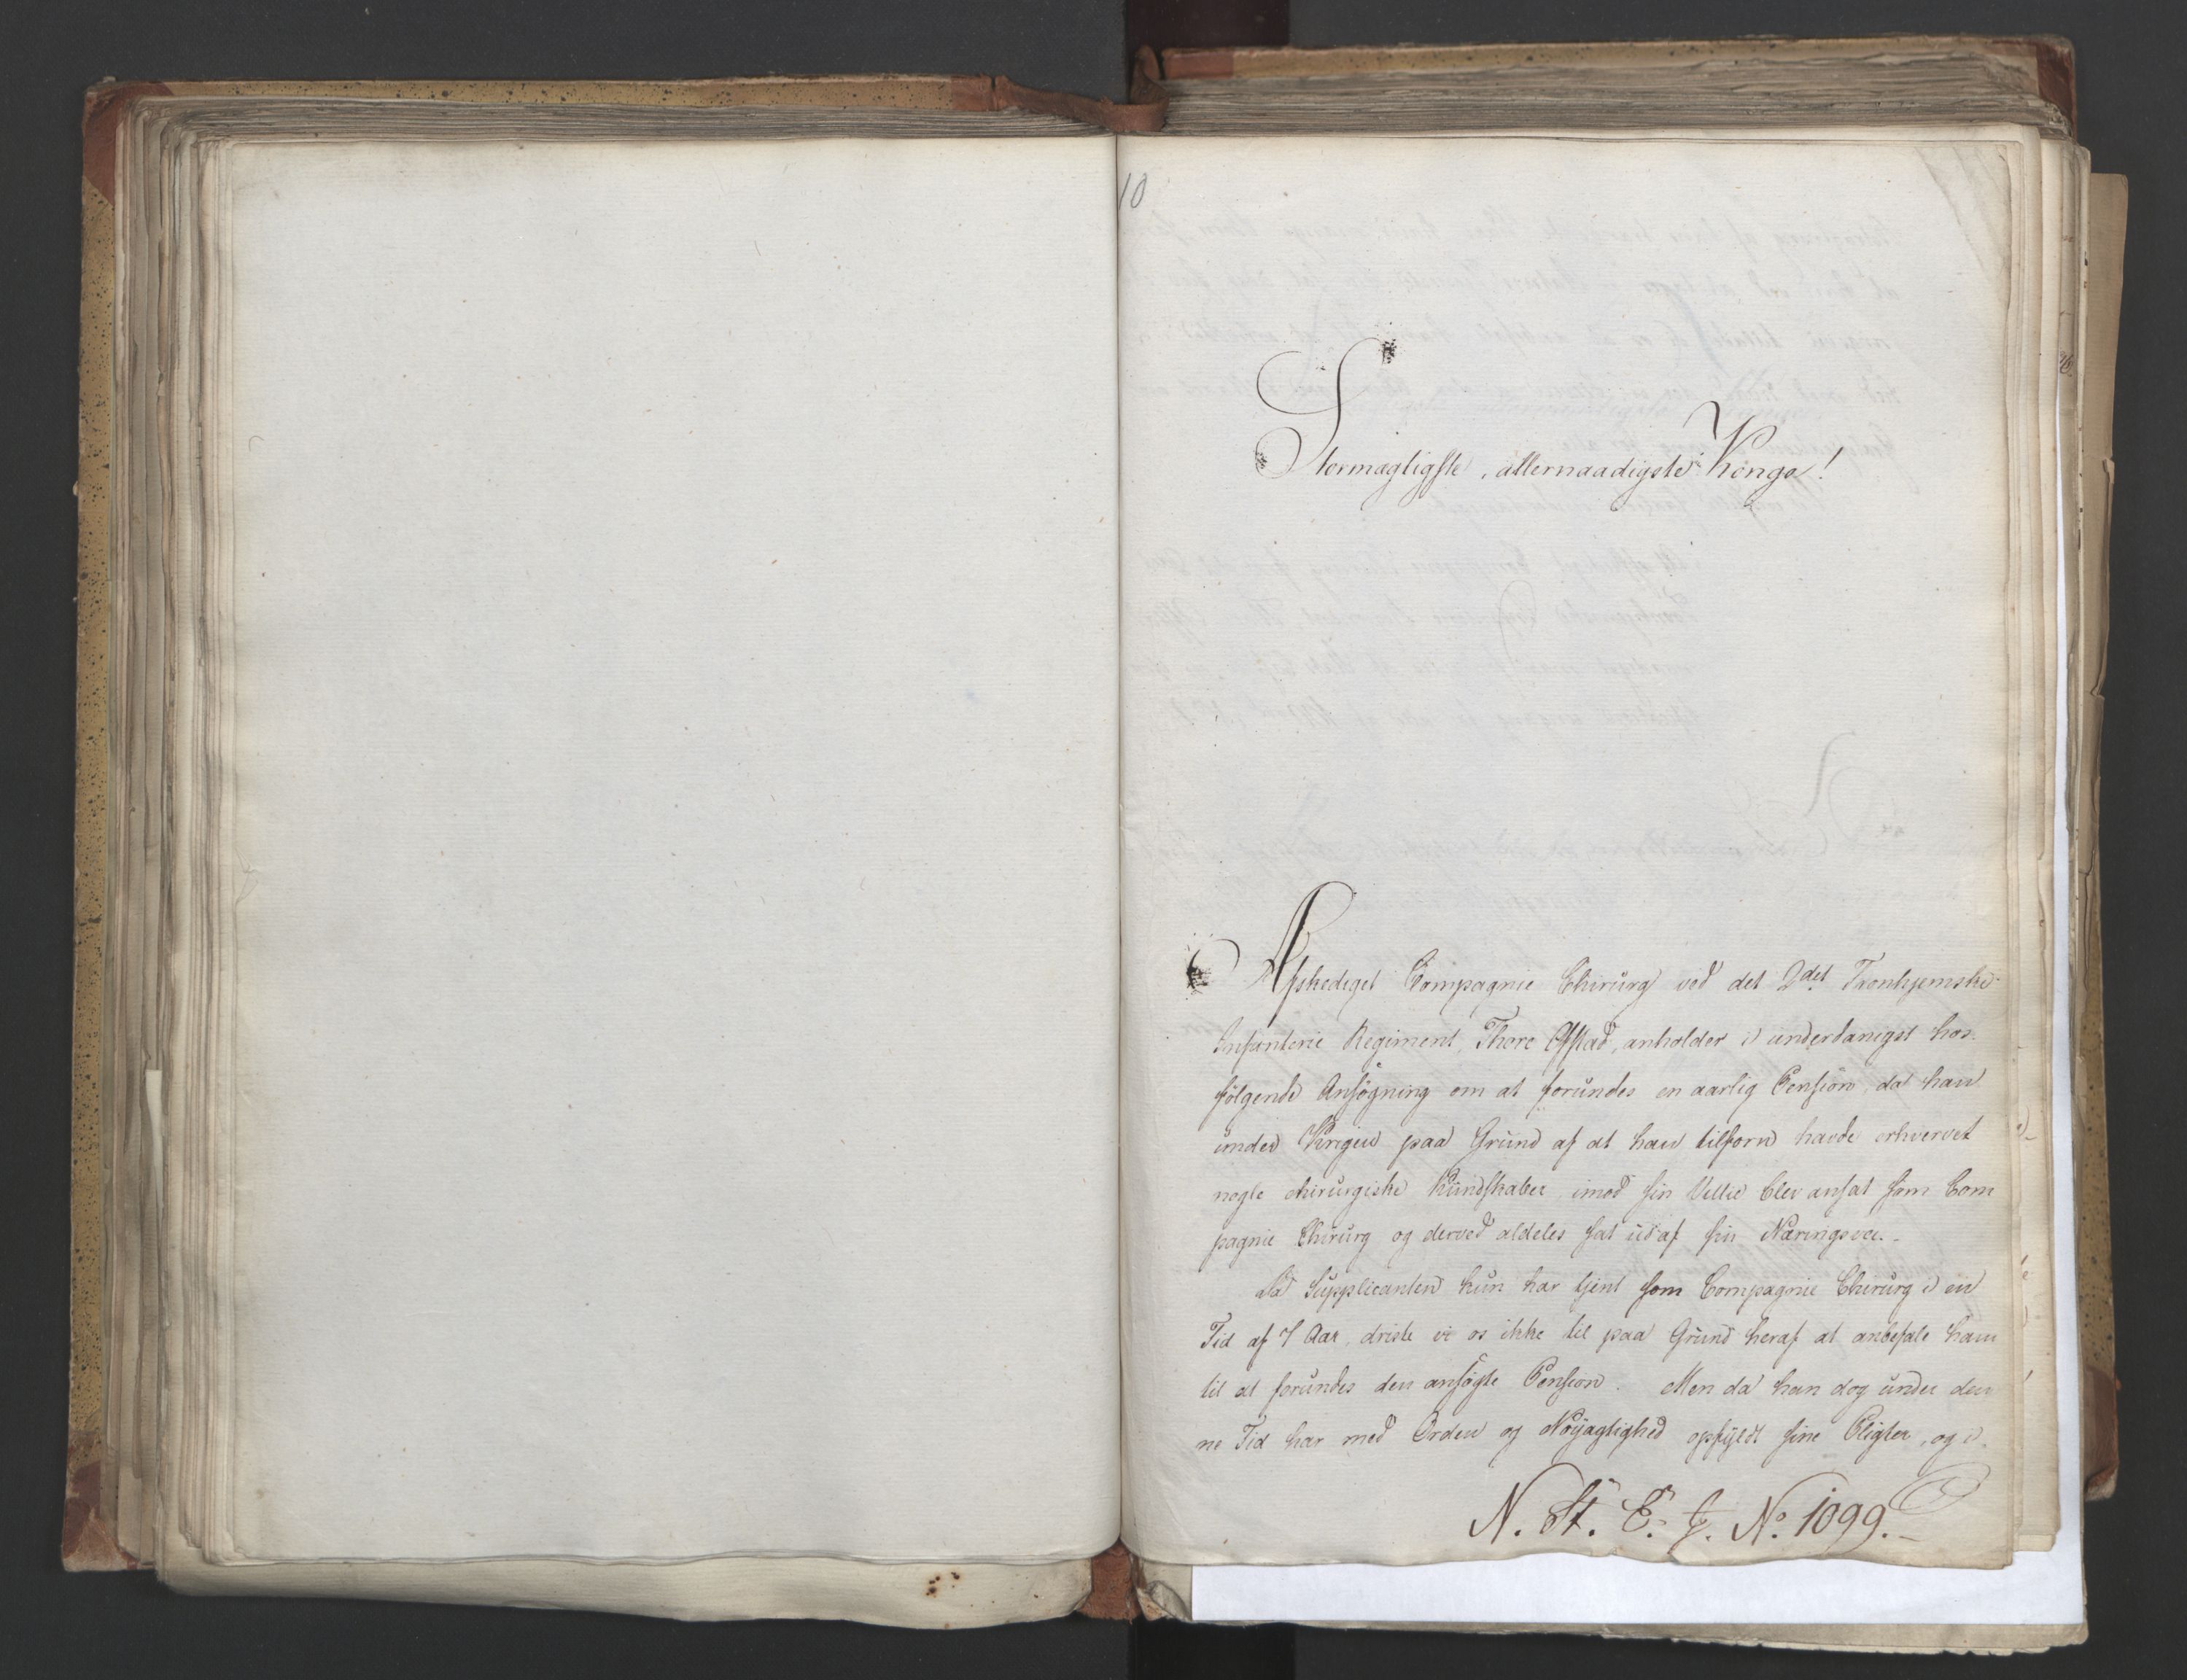 10
Stormægtigste, allernaadigste Konge!
Afskediget Compagnie Chirurg ved det 2det Tronhjemske
Infanterie Regiment, Thore Offstad, anholder i underdanigst hos-
følgende Ansøgning om at forundes en aarlig Pension, da han
under Krigen paa Grund af at han tilforn havde erhvervet
nogle chirurgiske Kundskaber imod sin Villie blev ansat som Com
pagnie Chirurg og derved aldeles sat ud af sin Næringsvei.-
Da Supplicanten kun har tjent som Compagnie Chirurg i en
Tid af 7 Aar, driste vi os ikke til paa Grund heraf at anbefale ham
til at forundes den ansøgte Pension. Men da han dog under den
ne Tid har med Orden og Nøÿagtighed opfÿldt sine Pligter, og i
N. St. E. J. No. 1099.-